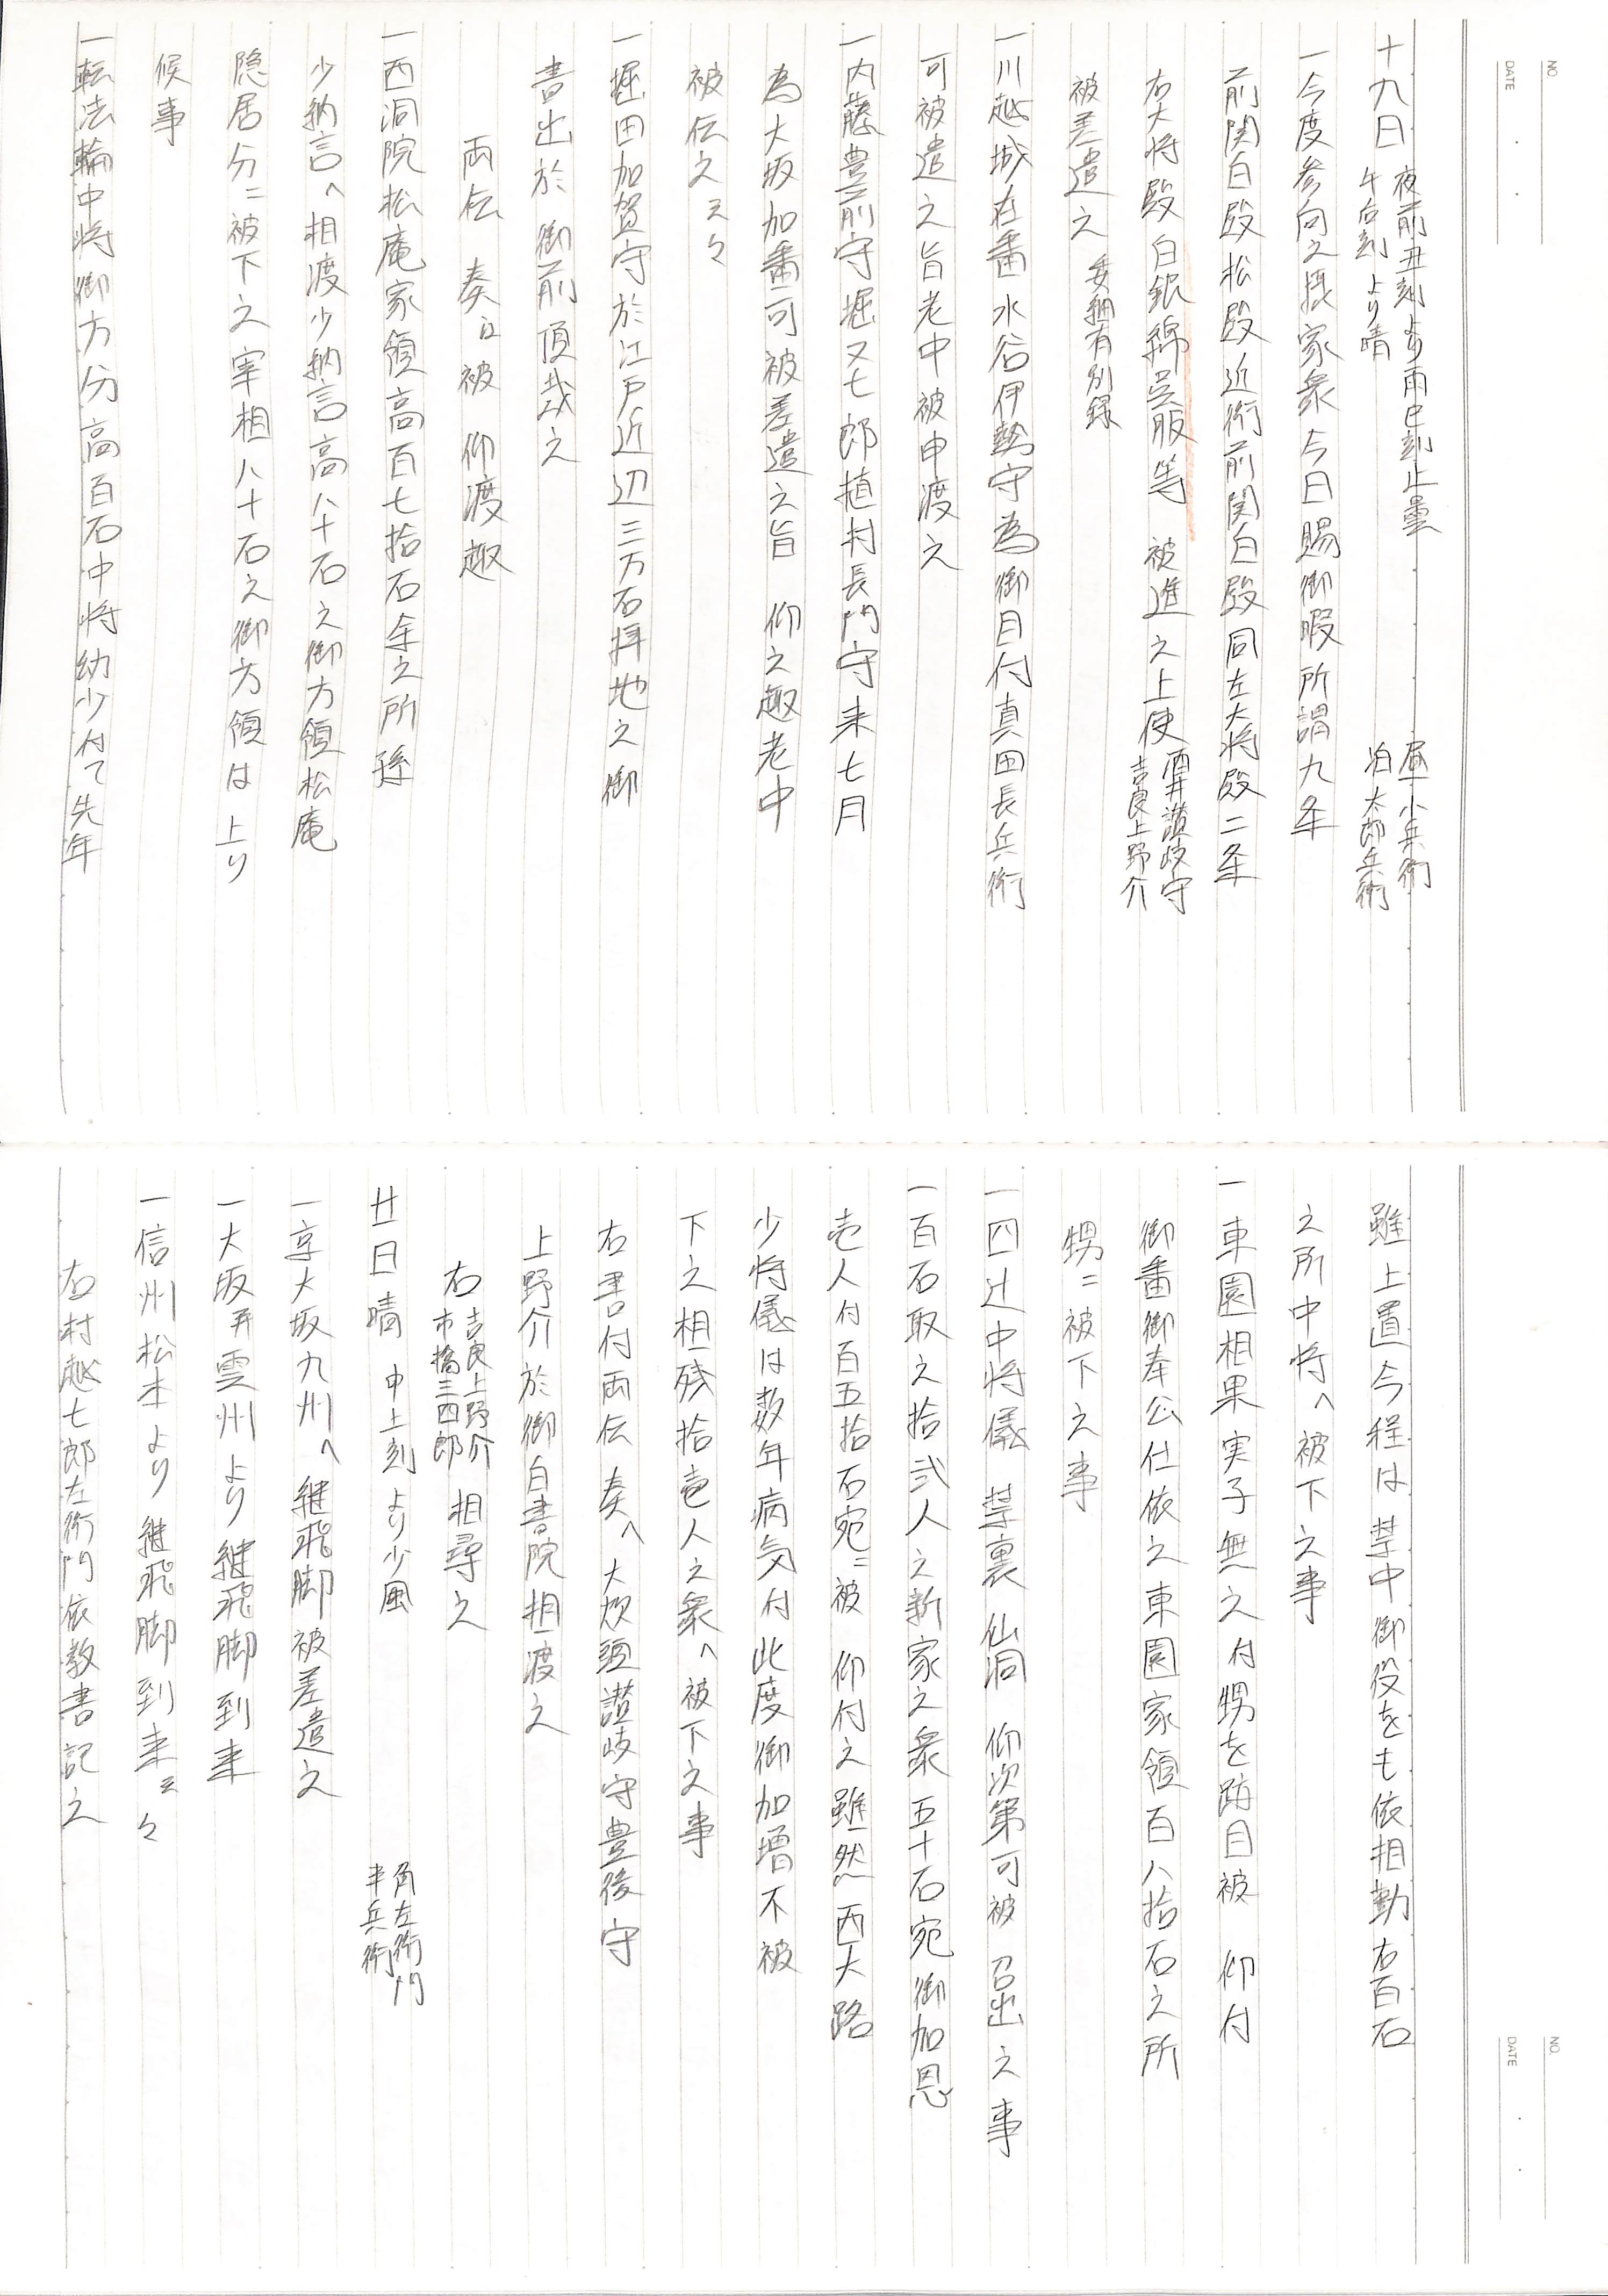 NO.
DATE
十九日 夜前丑刻より雨巳刻止曇 昼 小兵衛
午后刻より晴 泊 太郎兵衛
一今度参向之摂家衆今日賜御暇所謂九条
前関白殿松殿近衛前関白殿同左大将殿二条
右大将殿白銀綿呉服等 被進之上使 酒井讃岐守
吉良上野介
被差遣之 委細有別録
一川越城在番水谷伊勢守為御目付真田長兵衛
可被遣之旨老中被申渡之
一内藤豊前守堀又七郎植村長門守来七月
為大坂加番可被差遣之旨 仰之趣老中
被伝之云々
一堀田加賀守於江戸近辺三万石拝地之御
書出於 御前頂戴之
両伝 奏江被 仰渡趣
一西洞院松庵家領高百七拾石余之所孫
少納言へ相渡少納言高八十石之御方領松庵
隠居分ニ被下之宰相八十石之御方領は上り
候事
一転法輪中将御方分高百石中将幼少付て先年
NO.
DATE
雖上置今程は禁中御役をも依相勤右百石
之所中将へ被下之事
一東園相果実子無之付甥を跡目被 仰付
御番御奉公仕依之東園家領百八拾石之所
甥ニ被下之事
一四辻中将儀 禁裏 仙洞 仰次第可被 召出之事
一百石取之拾弐人之新家之衆五十石宛御加恩
壱人付百五拾石宛ニ被 仰付之雖然西大路
少将儀は数年病気付此度御加増不被
下之相残拾壱人之衆へ被下之事
右書付両伝 奏へ大炊頭讃岐守豊後守
上野介於御白書院相渡之
右 吉良上野介
市橋三四郎 相尋之
廿一日晴 申上刻より少風 角左衛門
半兵衛
一京大坂九州へ継飛脚被差遣之
一大坂并雲州より継飛脚到来
一信州松本より継飛脚到来云々
右村越七郎左衛門依教書記之